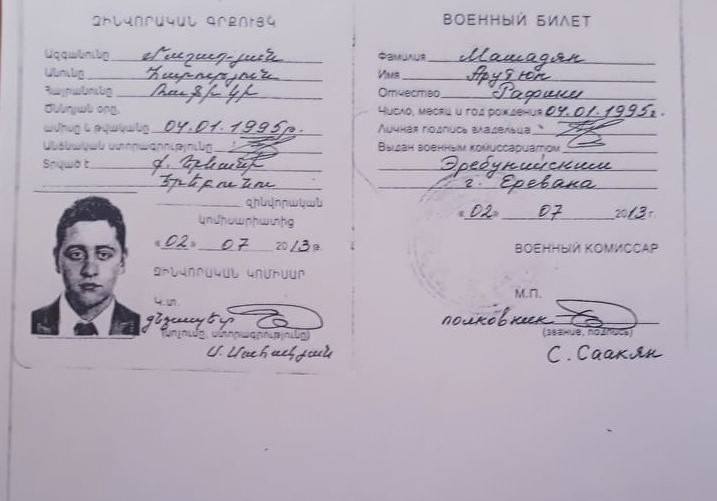 ԶԻՆՎՈՐԱԿԱՆ ԳՐՔՈՒՅԿ
Ազգանունը Մաշադյան
Անունը Հարություն
Հայրանունը Ռաֆիկի
Ծննդյան օրը,
ամիսը և թվականը 04.01.1995թ.
Անձնական ստորագրությունը
Տրված է ք. Երևանի
Էրեբունու
զինվորական
կոմիսարիատից
«02» 07 2013թ.
ԶԻՆՎՈՐԱԿԱՆ ԿՈՄԻՍԱՐ
Կ.տ.
գնդապետ
(կոչումը, ստորագրությունը)
Ս. Սահակյան
ВОЕННЫЙ БИЛЕТ
Фамилия Машадян
Имя Арутюн
Отчество Рафики
Число, месяц и год рождения 04.01.1995г.
Личная подпись владельца
Выдан военным комиссариатом
Эребунийским
г. Еревана
«02» 07 2013г.
ВОЕННЫЙ КОМИССАР
М.П.
полковник
(звание, подпись)
С. Саакян